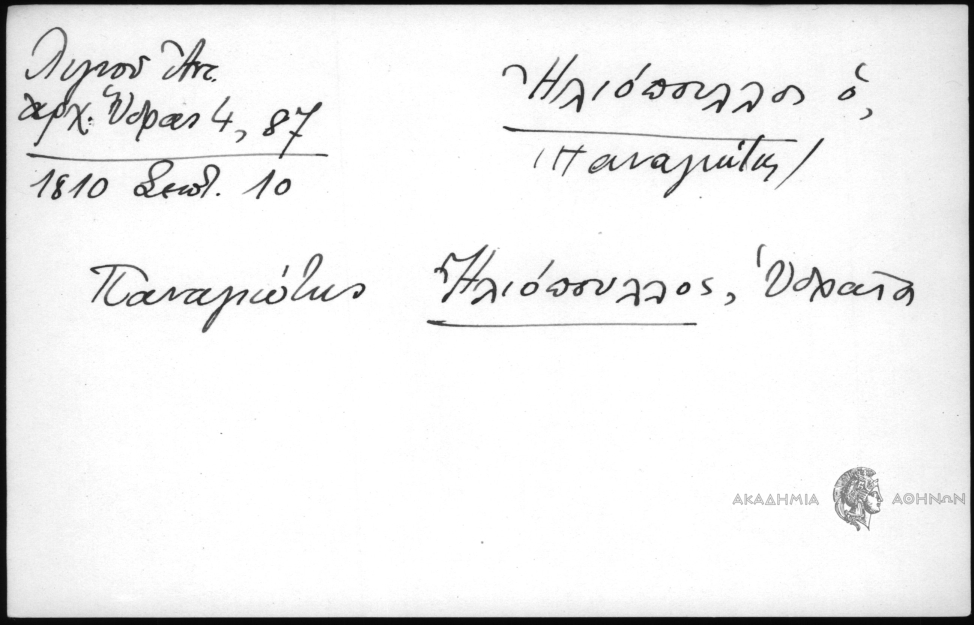 Λιγνοῦ Ἀντ.
ἀρχ. Ὕδρας 4, 87
1810 Σεπτ. 10
Ἠλιόπουλλος ὁ,
(Παναγιώτης)
Παναγιώτης Ἠλιόπουλλος, Ὕδρα
ΑΚΑΔΗΜΙΑ ΑΘΗΝΩΝ